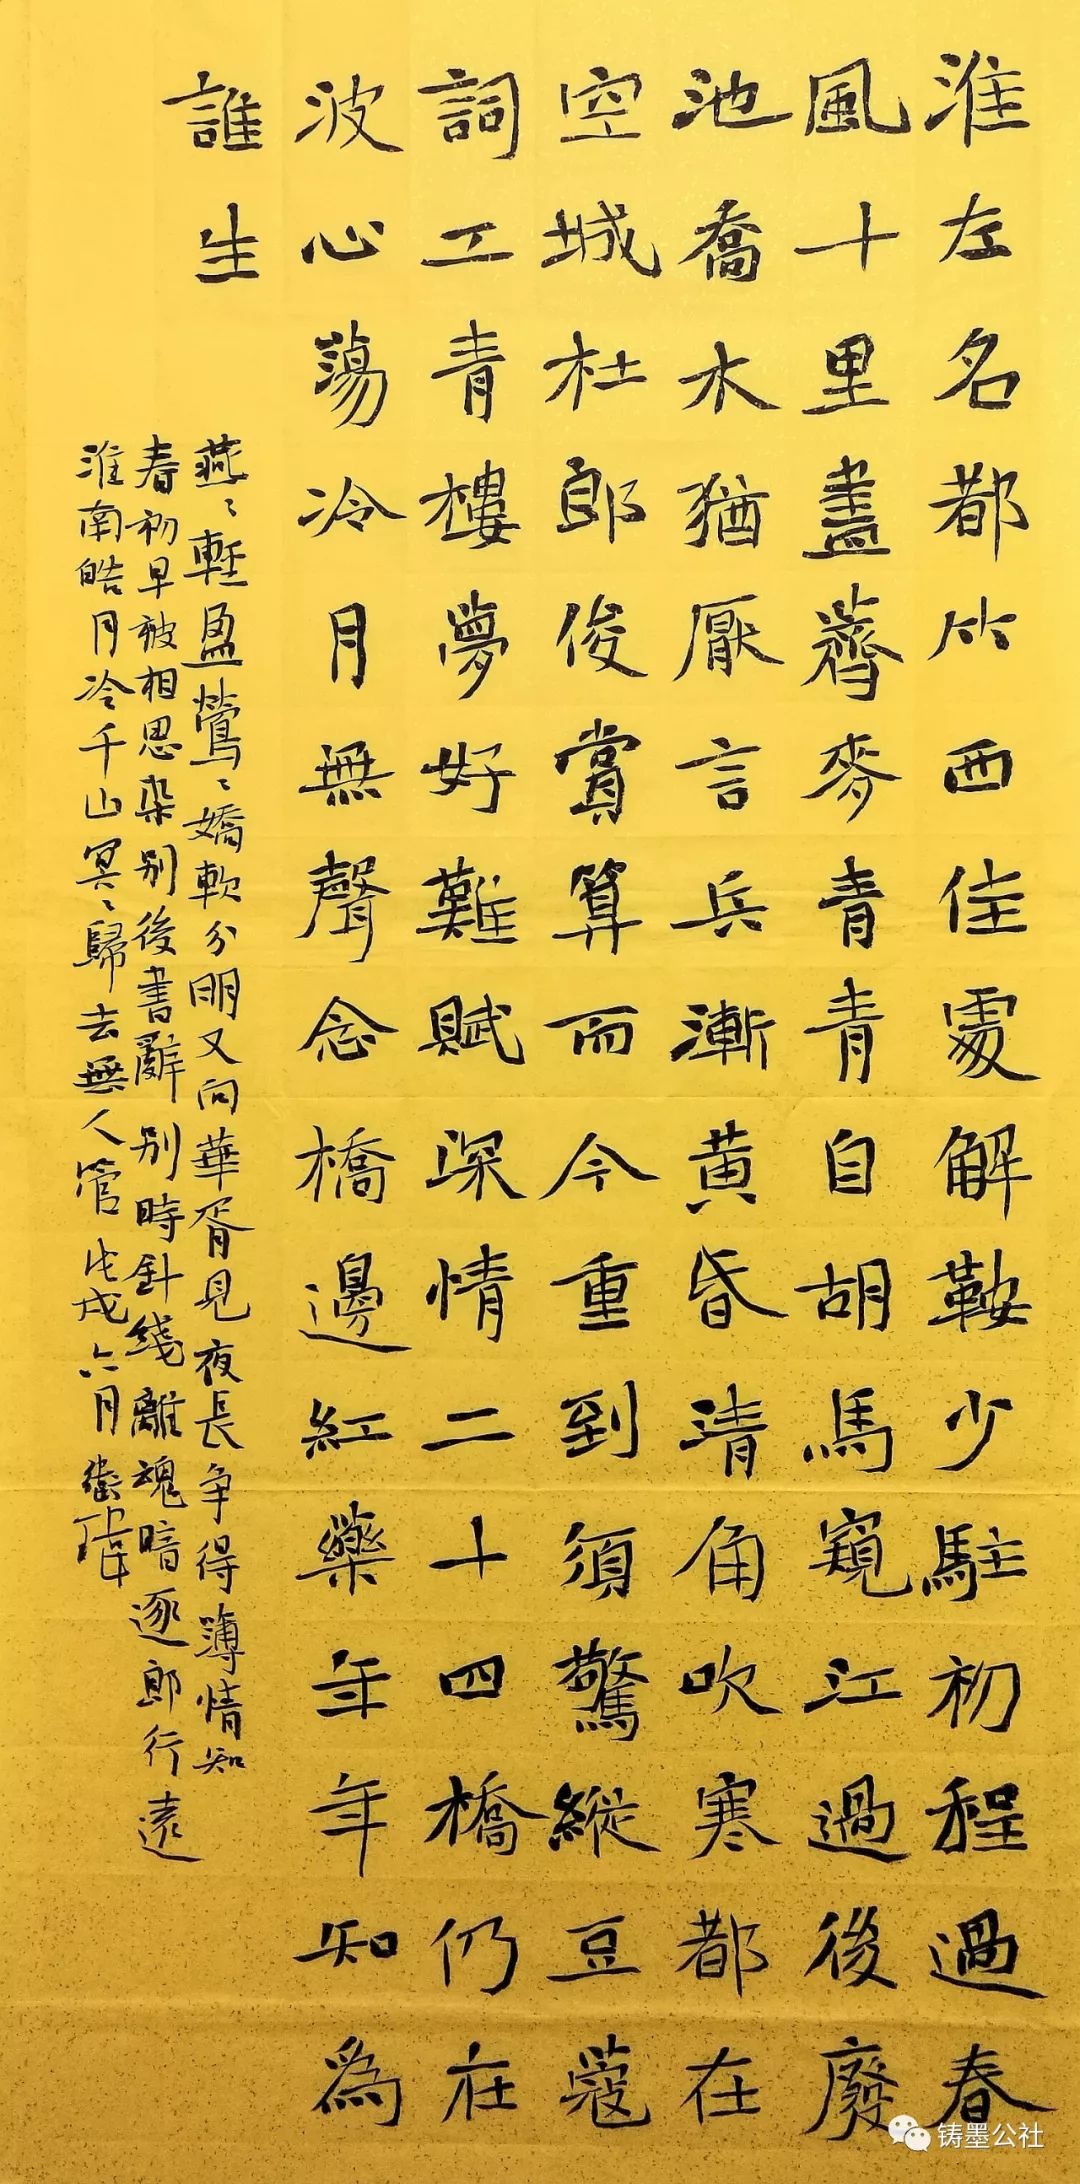 淮左名都竹西佳處解鞍少駐初程過春
風十里盡薺麥青青自胡馬窺江過後廢
池喬木猶厭言兵漸黄昏清角吹寒都在
空城杜郎俊賞算而今重到須驚縱豆蔻
詞工青樓夢好難賦深情二十四橋仍在
波心蕩冷月無聲念橋邊紅藥年年知為
誰生
燕〻輕盈鶯〻嬌軟分明又向華胥見夜長争得薄情知
春初早被相思染别後書辭别時針綫離魂暗逐郎行遠
淮南皓月冷千山冥〻歸去無人管戊戌六月
铸墨公社